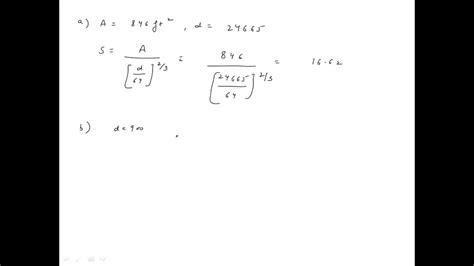 a) A = 846 ft², d = 24665
S = A / [d/64]^2/3 = 846 / [24665/64]^2/3 = 16.62
b) d = 900